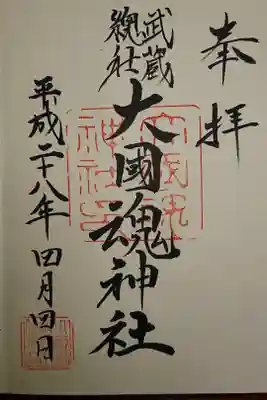 奉拝
武蔵
總社
大國魂神社
平成二十八年四月四日